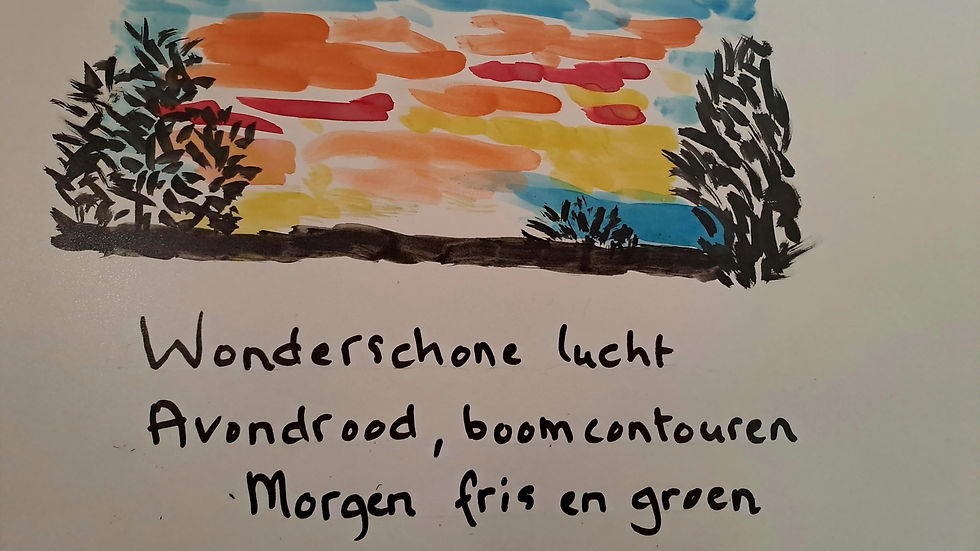 Wonderschone lucht
Avondrood, boomcontouren
Morgen fris en groen